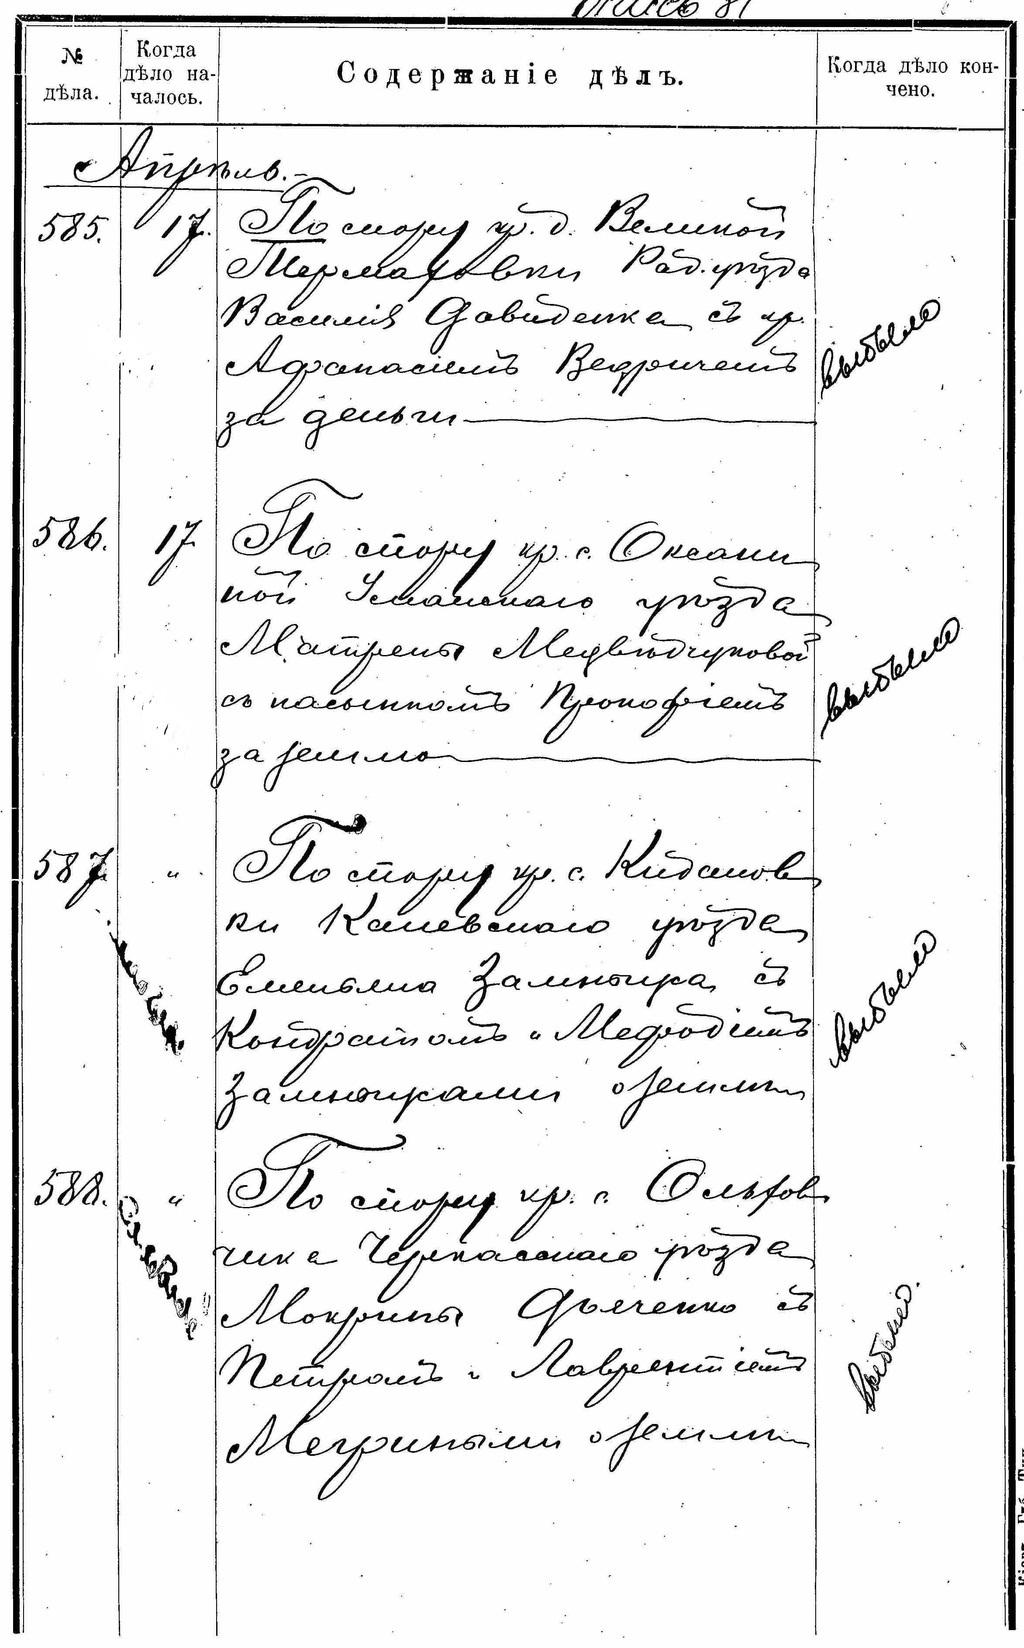 Опись 81
№ дѣла.
Когда дѣло началось.
Содержаніе дѣлъ.
Когда дѣло кончено.
Апрѣль.
585. 17. По спору кр. д. Великой
Термаховки Рад. уѣзда
Василія Давиденка съ кр.
Афанасіемъ
за деньги
выбыло
586. 17 По спору кр. с. Оксани
ной Уманскаго уѣзда
Матрены Медвѣдчуковой
съ пасынкомъ Прокофіемъ
за землю
выбыло
587. " По спору кр. с. Киданов
ки Каневскаго уѣзда
Емельяна Замнъ съ
Кондратомъ и Мефодіемъ
о землѣ
выбыло
588. " По спору кр. с. Ольхов
чика Черкасскаго уѣзда
Мокрины Дьяченко съ
Петромъ и Лаврентіемъ
о землѣ
выбыло.